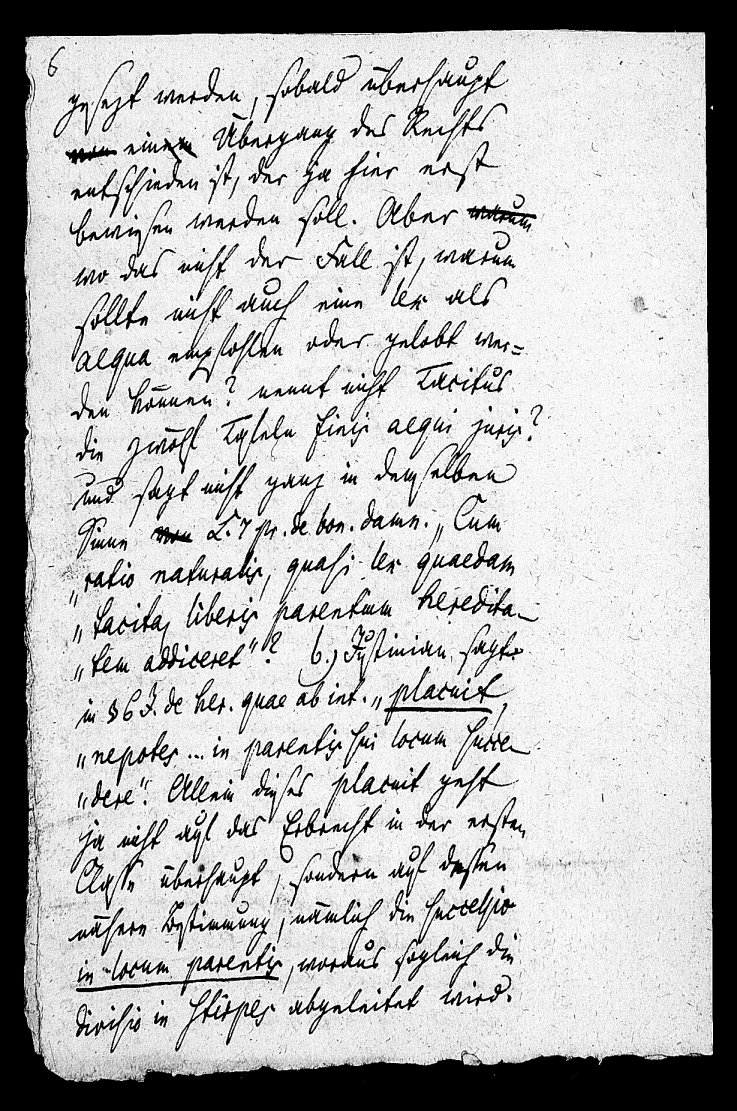 6
gesezt werden, sobald überhaupt
von einem Übergang des Rechts
entschieden ist, der ja hier erst
bewiesen werden soll. Aber warum
wo das nicht der Fall ist, warum
sollte nicht auch eine lex als
aequa empfohlen oder gelobt wer=
den können? nennt nicht Tacitus
die zwölf Tafeln finis aequi juris?
und sagt nicht ganz in demselben
Sinne von L. 7 pr. de bon. damn. „Cum
„ratio naturalis, quasi lex quaedam
„tacita, liberis parentum heredita-
„tem addiceret"? b.) Justinian sagt
in § 6 J. de her. quae ab int. „placuit,
„nepotes ... in parentis sui locum succe-
„dere". Allein dieses placuit geht
ja nicht auf das Erbrecht in der ersten
Classe überhaupt, sondern auf dessen
nähere Bestimmung, nämlich die successio
in locum parentis, woraus sogleich die
divisio in stirpes abgeleitet wird.